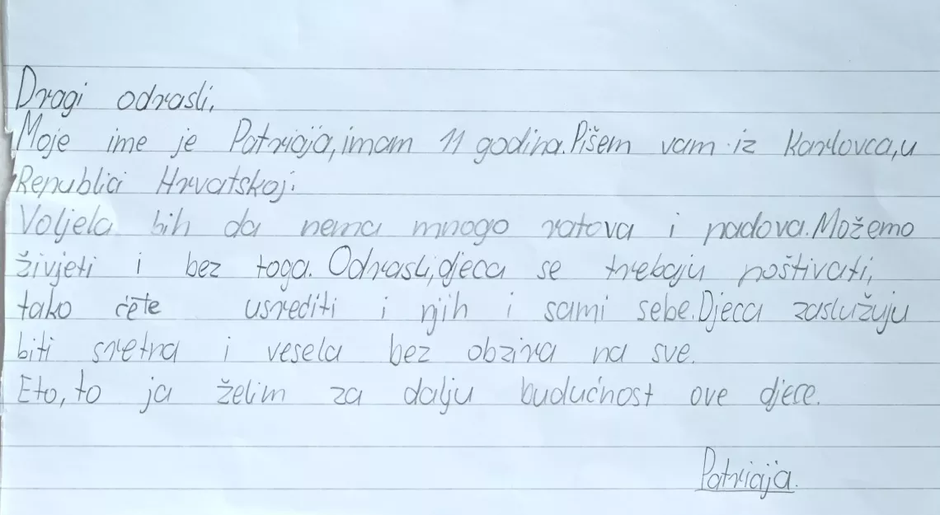 Dragi odrasli,
Moje ime je Patricija, imam 11 godina. Pišem vam iz Karlovca, u
Republici Hrvatskoj.
Voljela bih da nema mnogo ratova i padova. Možemo
živjeti i bez toga. Odrasli, djeca se trebaju poštivati,
tako ćete usrediti i njih i sami sebe. Djeca zaslužuju
biti sretna i vesela bez obzira na sve.
Eto, to ja želim za dalju budućnost ove djece.
Patricija.